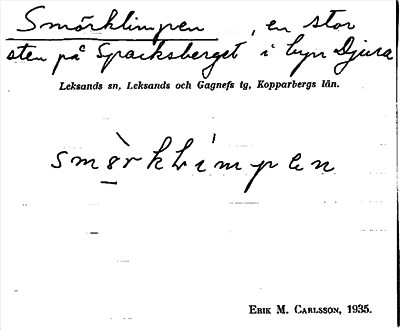 Smörklimpen, en stor
sten på Spacksberget i byn Djura
Leksands sn, Leksands och Gagnefs tg, Kopparbergs län.
smø̀rklímpen
ERIK M. CARLSSON, 1935.